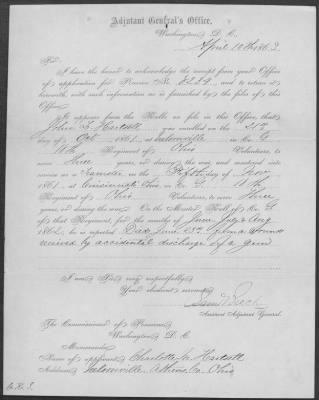 Adjutant General's Office,
Washington, D. C.
April 10th 1863
Sir:
I have the honor to acknowledge the receipt from your Office
of application for Pension No. and to return it
herewith, with such information as is furnished by the files of this
Office.
It appears from the Rolls on file in this Office, that
John was enrolled on the 21st
day of Oct 1861, at in Co. G
18th Regiment of Ohio Volunteers, to
serve three years, or during the war, and mustered into
service as a on the day of Nov
1861, at Cincinnati Ohio, in Co. G. 18th
Regiment of Ohio Volunteers, to serve three
years, or during the war. On the Muster Roll of Co. G
of that Regiment, for the months of June July & Aug
1862, he is reported Died June of a wound
received by accidental discharge of a gun
I am, Sir, very respectfully,
Your obedient servant,
Assistant Adjutant General.
The Commissioner of Pensions,
Washington, D. C.
Memoranda:
Name of applicant, Charlotte
Address, Athens Co. Ohio